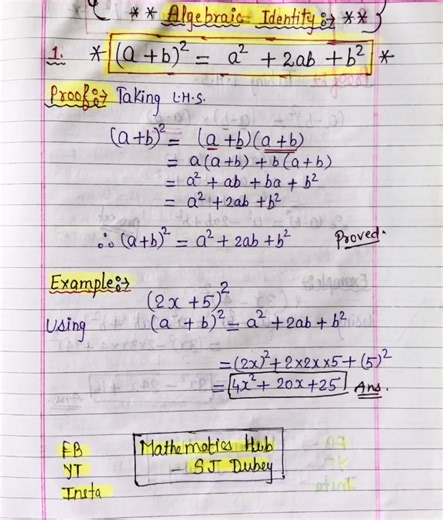 ** Algebraic Identity :→ **
1. * (a + b)² = a² + 2ab + b² *
Proof :→ Taking L.H.S.
(a+b)² = (a + b)(a + b)
= a(a+b) + b(a+b)
= a² + ab + ba + b²
= a² + 2ab + b²
∴ (a+b)² = a² + 2ab + b² Proved.
Example :→
(2x + 5)²
Using (a + b)² = a² + 2ab + b²
= (2x)² + 2×2x×5 + (5)²
= 4x² + 20x + 25 Ans.
FB
YT
Insta
Mathematics Hub
SJ Dubey